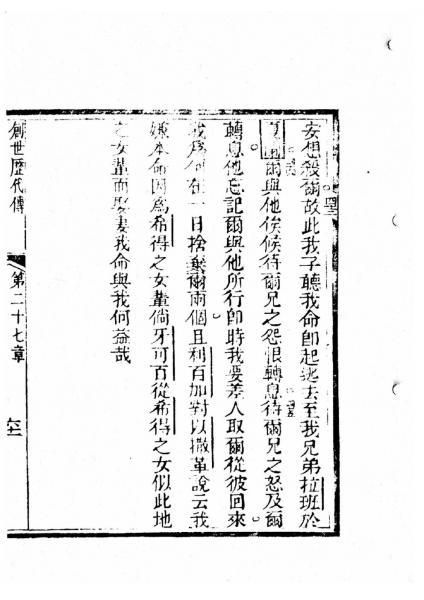 妄想殺爾故此我子聽我命卽起逃去至我兄弟拉班於
爾與他俟候待爾兄之怨恨轉息待爾兄之怒及爾
轉息他忘記爾與他所行卽時我要差人取爾從彼回來
我爲何在一日捨棄爾兩個且利百加對以撒革說云我
嫌本命因爲希得之女輩倘牙可百從希得之女似此地
之女輩而娶妻我命與我何益哉
創世歷代傳
第二十七章